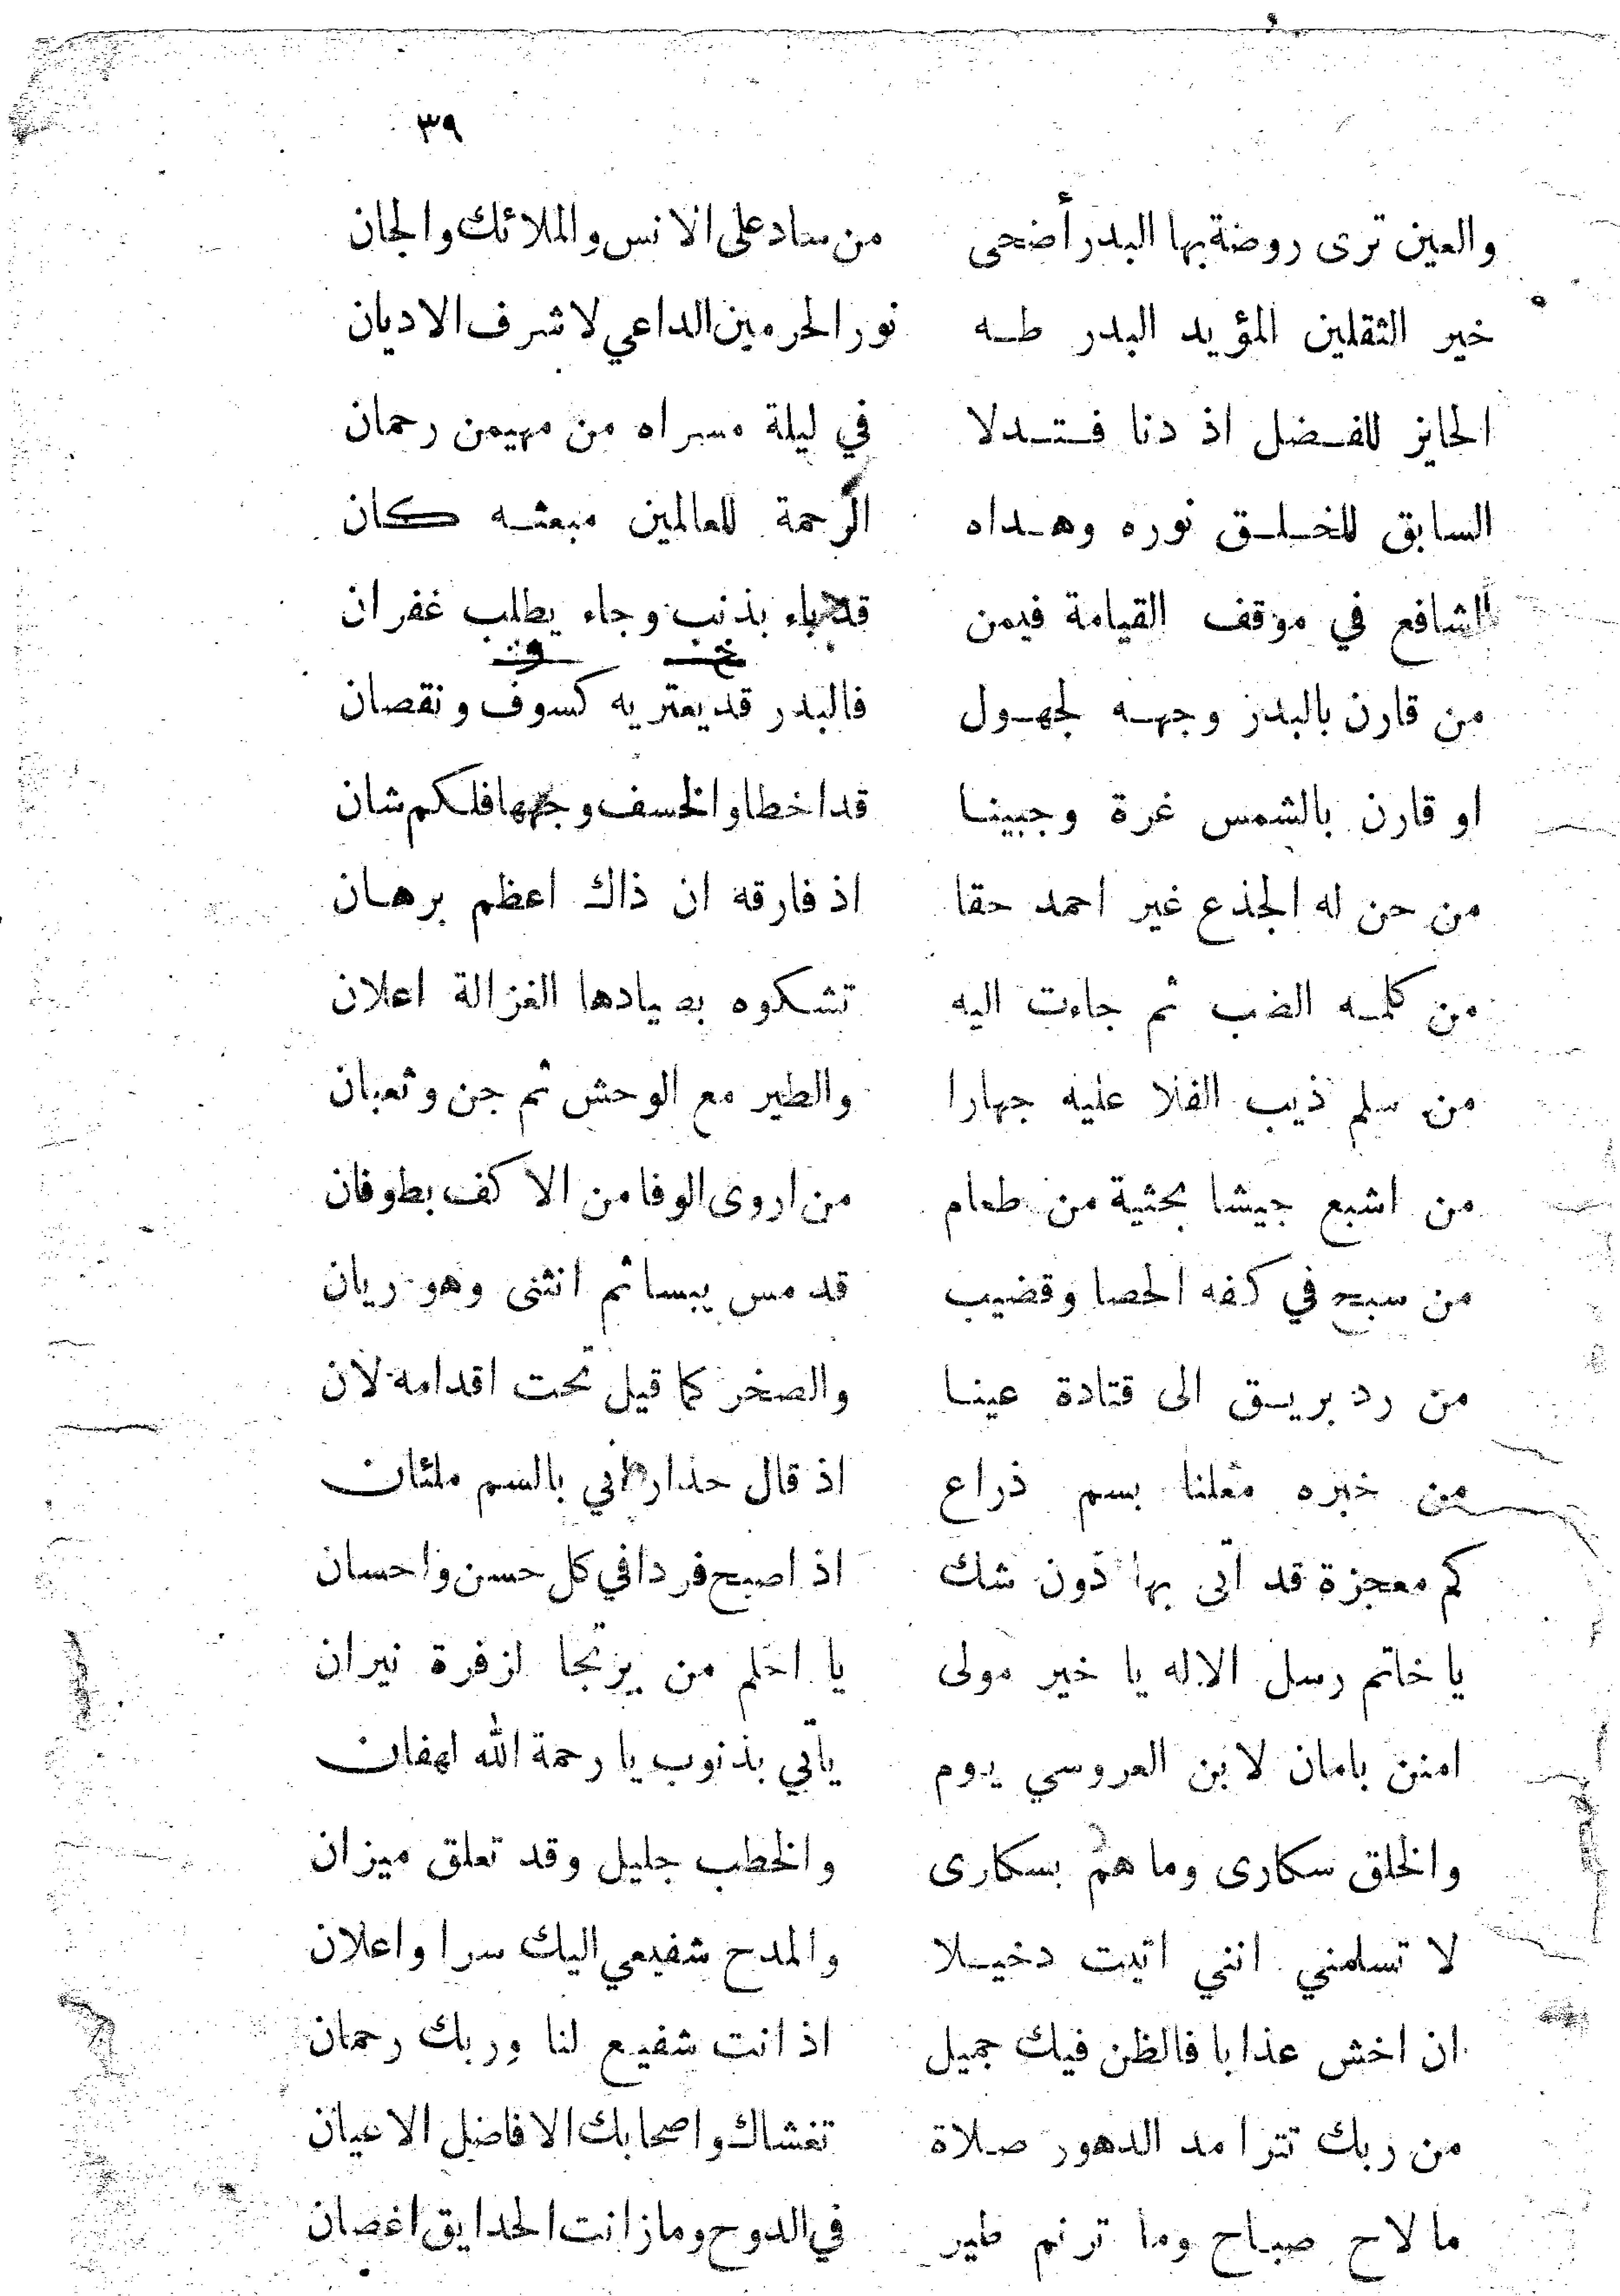 ٣٩
والعين ترى روضة بها البدر أضحى من ساد على الانس والملائك والجان
خير الثقلين المؤيد البدر طه نور الحرمين الداعي لاشرف الاديان
الحايز للفضل اذ دنا فتدلا في ليلة مسراه من مهيمن رحمان
السابق للخلق نوره وهداه الرحمة للعالمين مبعثه كان
الشافع في موقف القيامة فيمن قد باء بذنب وجاء يطلب غفران
من قارن بالبدر وجهه لجهول فالبدر قد يعتريه كسوف ونقصان
او قارن بالشمس غرة وجبينا قد اخطا والخسف وجهها فلكم شان
من حن له الجذع غير احمد حقا اذ فارقه ان ذاك اعظم برهان
من كلمه الضب ثم جاءت اليه تشكوه بصيادها الغزالة اعلان
من سلم ذيب الفلا عليه جهارا والطير مع الوحش ثم جن وثعبان
من اشبع جيشا بحثية من طعام من اروى الوفا من الاكف بطوفان
من سبح في كفه الحصا وقضيب قد مس يبسا ثم انثنى وهو ريان
من رد بريق الى قتادة عينا والصخر كما قيل تحت اقدامه لان
من خبره معلنا بسم ذراع اذ قال حذار اني بالسم ملئان
كم معجزة قد اتى بها دون شك اذ اصبح فردا في كل حسن واحسان
يا خاتم رسل الاله يا خير مولى يا احلم من يرتجا لزفرة نيران
امنن بامان لابن العروسي يوم يأتي بذنوب يا رحمة الله لهفان
والخلق سكارى وما هم بسكارى والخطب جليل وقد تعلق ميزان
لا تسلمني انني اتيت دخيلا والمدح شفيعي اليك سرا واعلان
ان اخش عذابا فالظن فيك جميل اذ انت شفيع لنا وربك رحمان
من ربك تترا مد الدهور صلاة تغشاك واصحابك الافاضل الاعيان
ما لاح صباح وما ترنم طير في الدوح وما زانت الحدايق اغصان